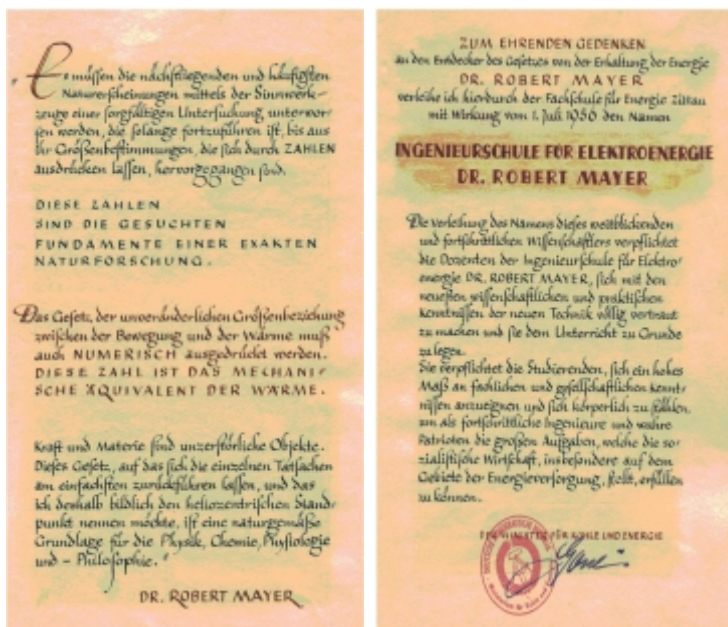 "Es müssen die nächstliegenden und häufigsten
Naturerscheinungen mittels der Sinnwerk-
zeuge einer sorgfältigen Untersuchung unterwor-
fen werden, die solange fortzuführen ist, bis aus
ihr Größenbestimmungen, die sich durch ZAHLEN
ausdrücken lassen, hervorgegangen sind.
DIESE ZAHLEN
SIND DIE GESUCHTEN
FUNDAMENTE EINER EXAKTEN
NATURFORSCHUNG.
Das Gesetz, der unveränderlichen Größenbeziehung
zwischen der Bewegung und der Wärme muß
auch NUMERISCH ausgedrückt werden.
DIESE ZAHL IST DAS MECHANI-
SCHE ÄQUIVALENT DER WÄRME.
Kraft und Materie sind unzerstörliche Objekte.
Dieses Gesetz, auf das sich die einzelnen Tatsachen
am einfachsten zurückführen lassen, und das
ich deshalb bildlich den heliozentrischen Stand-
punkt nennen möchte, ist eine naturgemäße
Grundlage für die Physik, Chemie, Physiologie
und – Philosophie."
DR. ROBERT MAYER
ZUM EHRENDEN GEDENKEN
an den Entdecker des Gesetzes von der Erhaltung der Energie
DR. ROBERT MAYER
verleihe ich hierdurch der Fachschule für Energie Zittau
mit Wirkung vom 1. Juli 1956 den Namen
INGENIEURSCHULE FÜR ELEKTROENERGIE
DR. ROBERT MAYER
Die Verleihung des Namens dieses weitblickenden
und fortschrittlichen Wissenschaftlers verpflichtet
die Dozenten der Ingenieurschule für Elektro-
energie DR. ROBERT MAYER, sich mit den
neuesten wissenschaftlichen und praktischen
Kenntnissen der neuen Technik völlig vertraut
zu machen und sie dem Unterricht zu Grunde
zu legen.
Sie verpflichtet die Studierenden, sich ein hohes
Maß an fachlichen und gesellschaftlichen Kennt-
nissen anzueignen und sich körperlich zu stählen,
um als fortschrittliche Ingenieure und wahre
Patrioten die großen Aufgaben, welche die so-
zialistische Wirtschaft, insbesondere auf dem
Gebiete der Energieversorgung, stellt, erfüllen
zu können.
DER MINISTER FÜR KOHLE UND ENERGIE